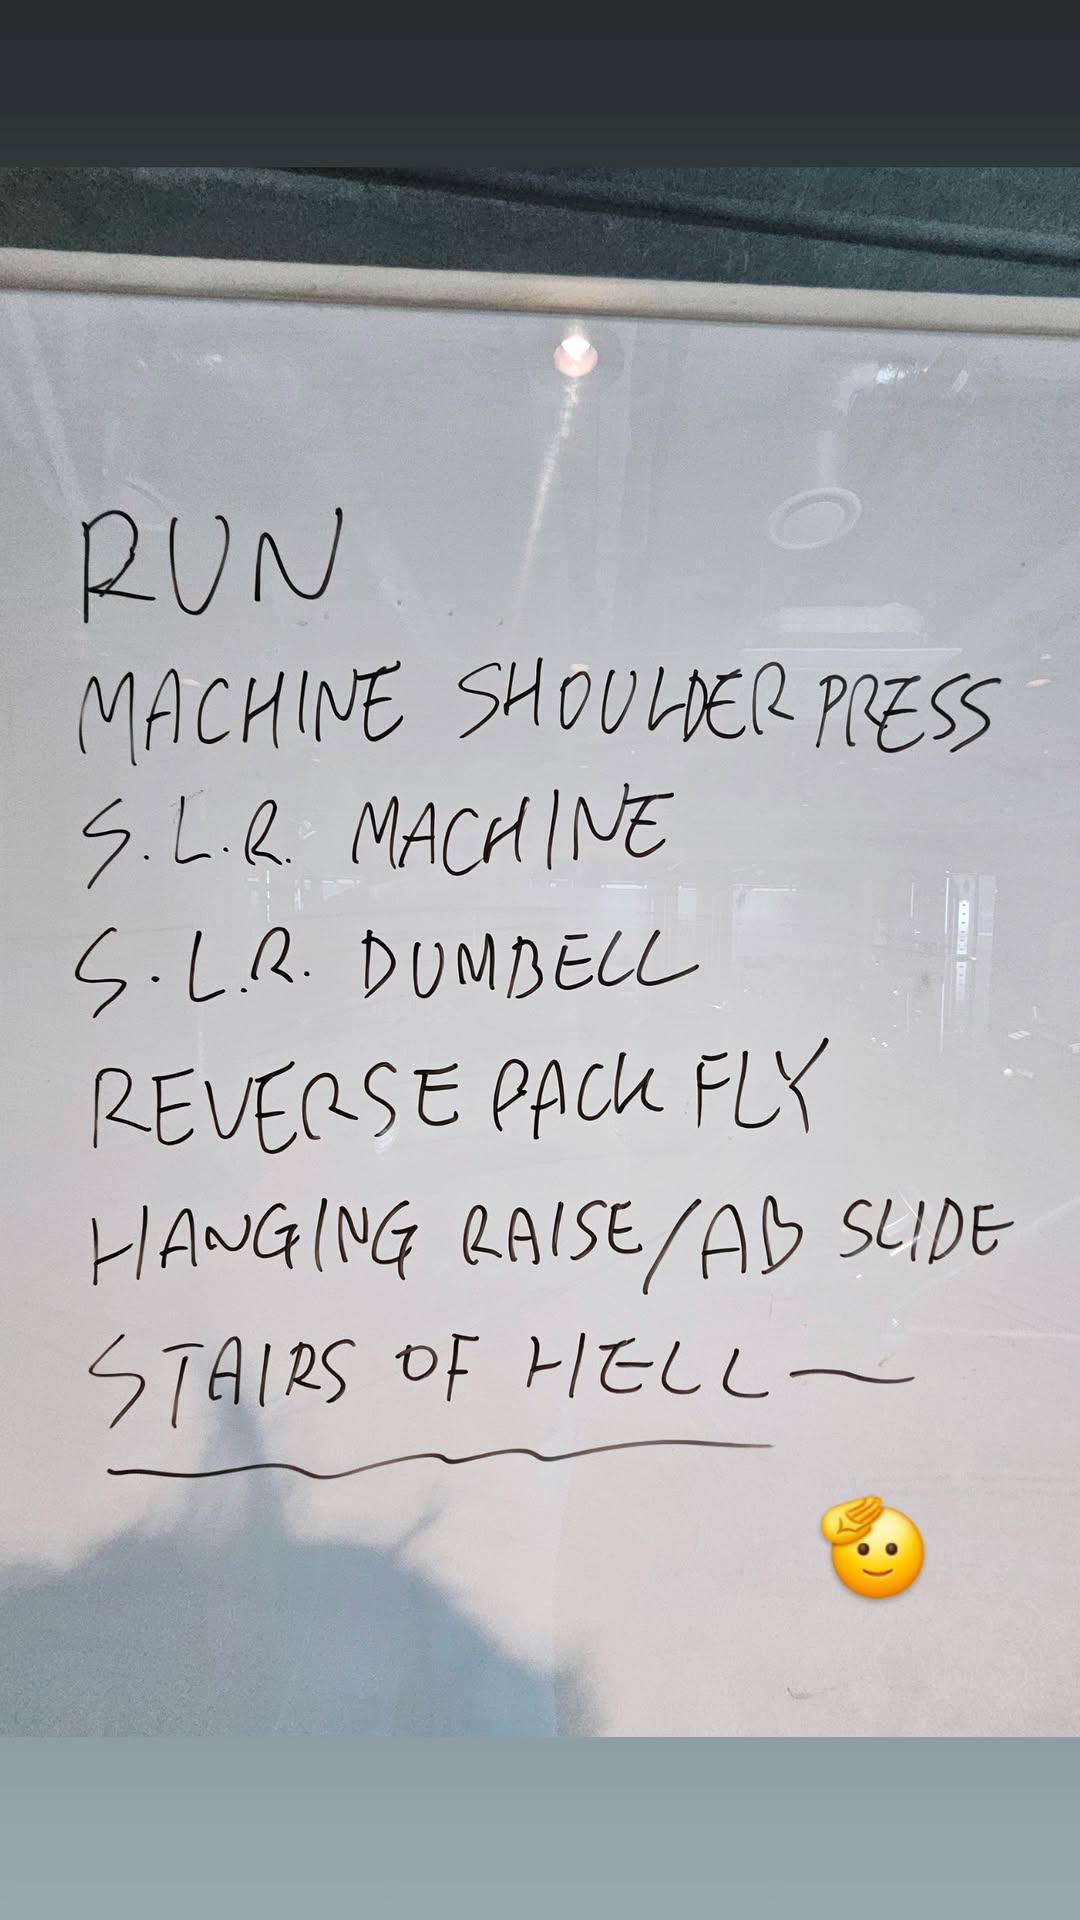 RUN
MACHINE SHOULDER PRESS
S.L.R. MACHINE
S.L.R. DUMBELL
REVERSE PACK FLY
HANGING RAISE/AB SLIDE
STAIRS OF HELL